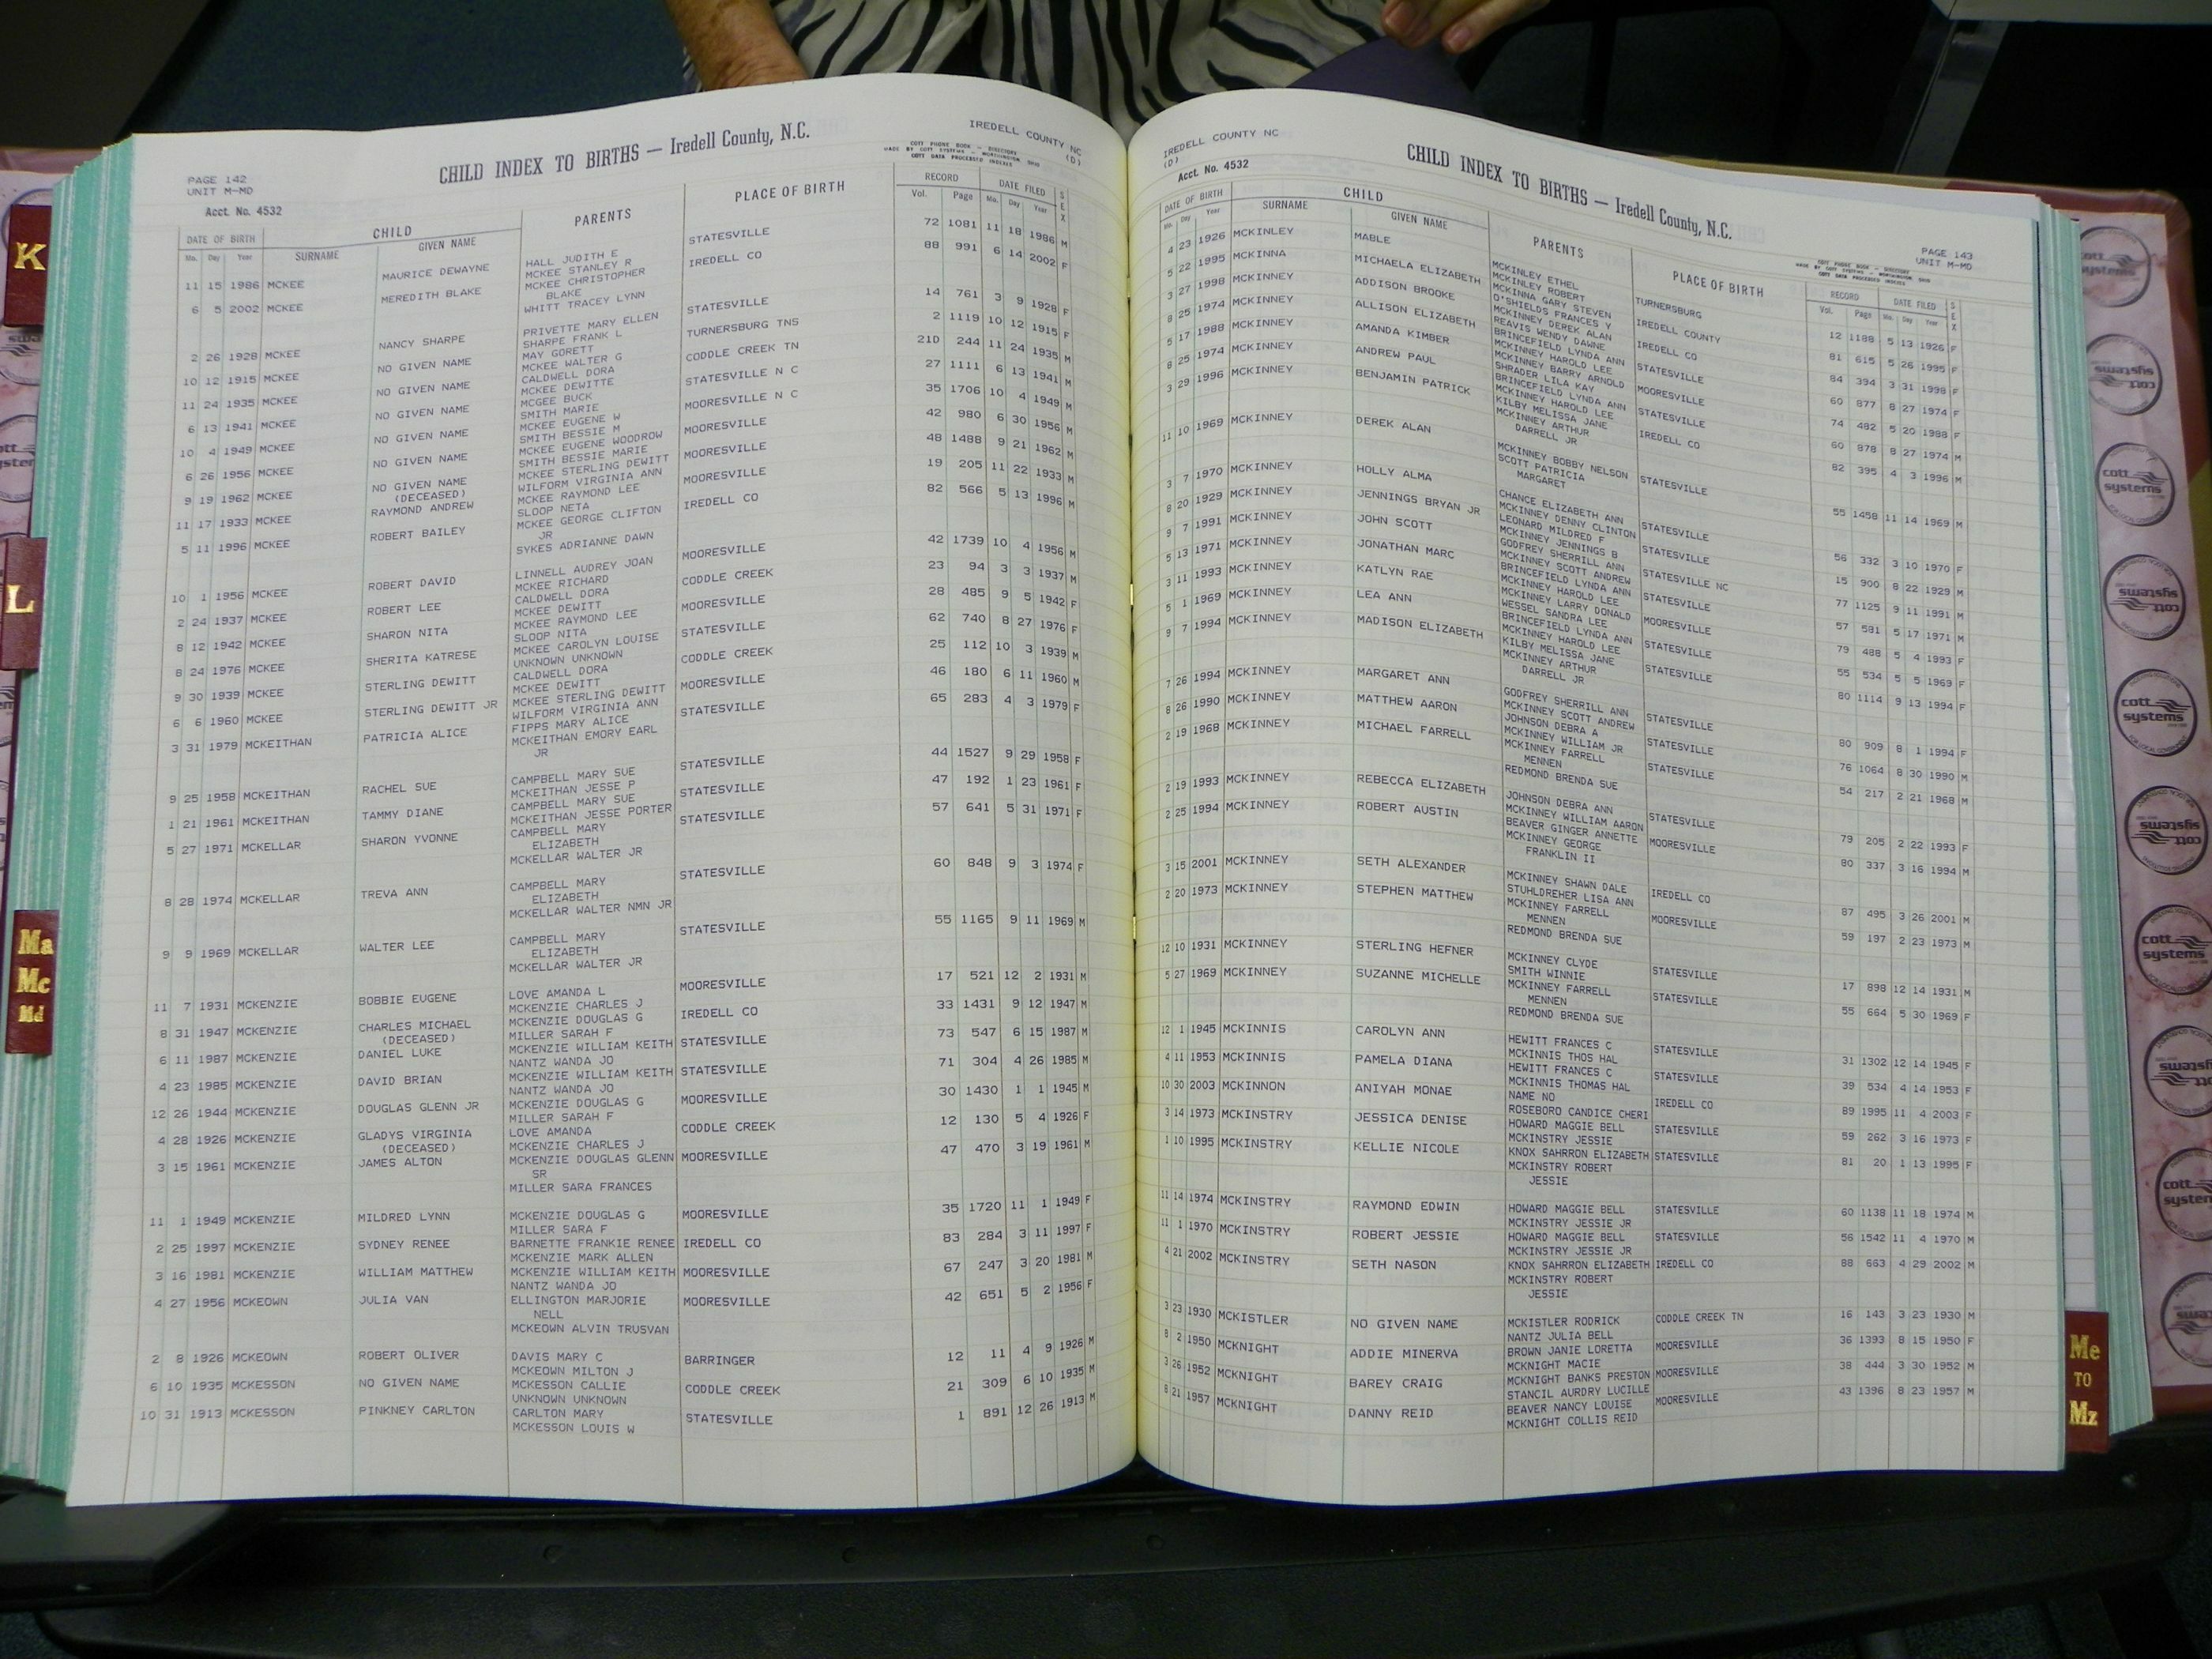 IREDELL COUNTY NC
(D)
CHILD INDEX TO BIRTHS — Iredell County, N.C.
COTT PHONE BOOK - DIRECTORY
MADE BY COTT SYSTEMS - WORTHINGTON, OHIO
COTT DATA PROCESSED INDEXES
PAGE 142
UNIT M-MD
Acct. No. 4532
DATE OF BIRTH CHILD PARENTS PLACE OF BIRTH RECORD DATE FILED SEX
Mo. Day Year SURNAME GIVEN NAME Vol. Page Mo. Day Year
11 15 1986 MCKEE MAURICE DEWAYNE HALL JUDITH E STATESVILLE 72 1081 11 18 1986 M
MCKEE STANLEY R
6 5 2002 MCKEE MEREDITH BLAKE MCKEE CHRISTOPHER IREDELL CO 88 991 6 14 2002 F
BLAKE
WHITT TRACEY LYNN
2 26 1928 MCKEE NANCY SHARPE PRIVETTE MARY ELLEN STATESVILLE 14 761 3 9 1928 F
SHARPE FRANK L
10 12 1915 MCKEE NO GIVEN NAME MAY GORETT TURNERSBURG TNS 2 1119 10 12 1915 F
MCKEE WALTER G
11 24 1935 MCKEE NO GIVEN NAME CALDWELL DORA CODDLE CREEK TN 21D 244 11 24 1935 M
MCKEE DEWITTE
6 13 1941 MCKEE NO GIVEN NAME MCGEE BUCK STATESVILLE N C 27 1111 6 13 1941 M
SMITH MARIE
10 4 1949 MCKEE NO GIVEN NAME MCKEE EUGENE W MOORESVILLE N C 35 1706 10 4 1949 M
SMITH BESSIE M
6 26 1956 MCKEE NO GIVEN NAME MCKEE EUGENE WOODROW MOORESVILLE 42 980 6 30 1956 M
SMITH BESSIE MARIE
9 19 1962 MCKEE NO GIVEN NAME MCKEE STERLING DEWITT MOORESVILLE 48 1488 9 21 1962 M
(DECEASED) WILFORM VIRGINIA ANN
11 17 1933 MCKEE RAYMOND ANDREW MCKEE RAYMOND LEE MOORESVILLE 19 205 11 22 1933 M
SLOOP NETA
5 11 1996 MCKEE ROBERT BAILEY MCKEE GEORGE CLIFTON IREDELL CO 82 566 5 13 1996 M
JR
SYKES ADRIANNE DAWN
10 1 1956 MCKEE ROBERT DAVID LINNELL AUDREY JOAN MOORESVILLE 42 1739 10 4 1956 M
MCKEE RICHARD
2 24 1937 MCKEE ROBERT LEE CALDWELL DORA CODDLE CREEK 23 94 3 3 1937 M
MCKEE DEWITT
8 12 1942 MCKEE SHARON NITA MCKEE RAYMOND LEE MOORESVILLE 28 485 9 5 1942 F
SLOOP NITA
8 24 1976 MCKEE SHERITA KATRESE MCKEE CAROLYN LOUISE STATESVILLE 62 740 8 27 1976 F
UNKNOWN UNKNOWN
9 30 1939 MCKEE STERLING DEWITT CALDWELL DORA CODDLE CREEK 25 112 10 3 1939 M
MCKEE DEWITT
6 6 1960 MCKEE STERLING DEWITT JR MCKEE STERLING DEWITT MOORESVILLE 46 180 6 11 1960 M
WILFORM VIRGINIA ANN
3 31 1979 MCKEITHAN PATRICIA ALICE FIPPS MARY ALICE STATESVILLE 65 283 4 3 1979 F
MCKEITHAN EMORY EARL
JR
9 25 1958 MCKEITHAN RACHEL SUE CAMPBELL MARY SUE STATESVILLE 44 1527 9 29 1958 F
MCKEITHAN JESSE P
1 21 1961 MCKEITHAN TAMMY DIANE CAMPBELL MARY SUE STATESVILLE 47 192 1 23 1961 F
MCKEITHAN JESSE PORTER
5 27 1971 MCKELLAR SHARON YVONNE CAMPBELL MARY STATESVILLE 57 641 5 31 1971 F
ELIZABETH
MCKELLAR WALTER JR
8 28 1974 MCKELLAR TREVA ANN CAMPBELL MARY STATESVILLE 60 848 9 3 1974 F
ELIZABETH
MCKELLAR WALTER NMN JR
9 9 1969 MCKELLAR WALTER LEE CAMPBELL MARY STATESVILLE 55 1165 9 11 1969 M
ELIZABETH
MCKELLAR WALTER JR
11 7 1931 MCKENZIE BOBBIE EUGENE LOVE AMANDA L MOORESVILLE 17 521 12 2 1931 M
MCKENZIE CHARLES J
8 31 1947 MCKENZIE CHARLES MICHAEL MCKENZIE DOUGLAS G IREDELL CO 33 1431 9 12 1947 M
(DECEASED) MILLER SARAH F
6 11 1987 MCKENZIE DANIEL LUKE MCKENZIE WILLIAM KEITH STATESVILLE 73 547 6 15 1987 M
NANTZ WANDA JO
4 23 1985 MCKENZIE DAVID BRIAN MCKENZIE WILLIAM KEITH STATESVILLE 71 304 4 26 1985 M
NANTZ WANDA JO
12 26 1944 MCKENZIE DOUGLAS GLENN JR MCKENZIE DOUGLAS G MOORESVILLE 30 1430 1 1 1945 M
MILLER SARAH F
4 28 1926 MCKENZIE GLADYS VIRGINIA LOVE AMANDA CODDLE CREEK 12 130 5 4 1926 F
(DECEASED) MCKENZIE CHARLES J
3 15 1961 MCKENZIE JAMES ALTON MCKENZIE DOUGLAS GLENN MOORESVILLE 47 470 3 19 1961 M
SR
MILLER SARA FRANCES
11 1 1949 MCKENZIE MILDRED LYNN MCKENZIE DOUGLAS G MOORESVILLE 35 1720 11 1 1949 F
MILLER SARA F
2 25 1997 MCKENZIE SYDNEY RENEE BARNETTE FRANKIE RENEE IREDELL CO 83 284 3 11 1997 F
MCKENZIE MARK ALLEN
3 16 1981 MCKENZIE WILLIAM MATTHEW MCKENZIE WILLIAM KEITH MOORESVILLE 67 247 3 20 1981 M
NANTZ WANDA JO
4 27 1956 MCKEOWN JULIA VAN ELLINGTON MARJORIE MOORESVILLE 42 651 5 2 1956 F
NELL
MCKEOWN ALVIN TRUSVAN
2 8 1926 MCKEOWN ROBERT OLIVER DAVIS MARY C BARRINGER 12 11 4 9 1926 M
MCKEOWN MILTON J
6 10 1935 MCKESSON NO GIVEN NAME MCKESSON CALLIE CODDLE CREEK 21 309 6 10 1935 M
UNKNOWN UNKNOWN
10 31 1913 MCKESSON PINKNEY CARLTON CARLTON MARY STATESVILLE 1 891 12 26 1913 M
MCKESSON LOUIS W
IREDELL COUNTY NC
(D)
Acct. No. 4532
CHILD INDEX TO BIRTHS — Iredell County, N.C.
PAGE 143
UNIT M-MD
COTT PHONE BOOK - DIRECTORY
MADE BY COTT SYSTEMS - WORTHINGTON, OHIO
COTT DATA PROCESSED INDEXES
DATE OF BIRTH CHILD PARENTS PLACE OF BIRTH RECORD DATE FILED SEX
Mo. Day Year SURNAME GIVEN NAME Vol. Page Mo. Day Year
4 23 1926 MCKINLEY MABLE MCKINLEY ETHEL TURNERSBURG 12 1188 5 13 1926 F
MCKINLEY ROBERT
5 22 1995 MCKINNA MICHAELA ELIZABETH MCKINNA GARY STEVEN IREDELL COUNTY 81 615 5 26 1995 F
O'SHIELDS FRANCES Y
3 27 1998 MCKINNEY ADDISON BROOKE MCKINNEY DEREK ALAN IREDELL CO 84 394 3 31 1998 F
REAVIS WENDY DAWNE
8 25 1974 MCKINNEY ALLISON ELIZABETH BRINCEFIELD LYNDA ANN STATESVILLE 60 877 8 27 1974 F
MCKINNEY HAROLD LEE
5 17 1988 MCKINNEY AMANDA KIMBER MCKINNEY BARRY ARNOLD MOORESVILLE 74 482 5 20 1988 F
SHRADER LILA KAY
8 25 1974 MCKINNEY ANDREW PAUL BRINCEFIELD LYNDA ANN STATESVILLE 60 878 8 27 1974 M
MCKINNEY HAROLD LEE
3 29 1996 MCKINNEY BENJAMIN PATRICK KILBY MELISSA JANE IREDELL CO 82 395 4 3 1996 M
MCKINNEY ARTHUR
DARRELL JR
11 10 1969 MCKINNEY DEREK ALAN MCKINNEY BOBBY NELSON STATESVILLE 55 1458 11 14 1969 M
SCOTT PATRICIA
MARGARET
3 7 1970 MCKINNEY HOLLY ALMA CHANCE ELIZABETH ANN STATESVILLE 56 332 3 10 1970 F
MCKINNEY DENNY CLINTON
8 20 1929 MCKINNEY JENNINGS BRYAN JR LEONARD MILDRED F STATESVILLE 15 900 8 22 1929 M
MCKINNEY JENNINGS B
9 7 1991 MCKINNEY JOHN SCOTT GODFREY SHERRILL ANN STATESVILLE NC 77 1125 9 11 1991 M
MCKINNEY SCOTT ANDREW
5 13 1971 MCKINNEY JONATHAN MARC BRINCEFIELD LYNDA ANN STATESVILLE 57 581 5 17 1971 M
MCKINNEY HAROLD LEE
3 11 1993 MCKINNEY KATLYN RAE MCKINNEY LARRY DONALD MOORESVILLE 79 488 5 4 1993 F
WESSEL SANDRA LEE
5 1 1969 MCKINNEY LEA ANN BRINCEFIELD LYNDA ANN STATESVILLE 55 534 5 5 1969 F
MCKINNEY HAROLD LEE
9 7 1994 MCKINNEY MADISON ELIZABETH KILBY MELISSA JANE STATESVILLE 80 1114 9 13 1994 F
MCKINNEY ARTHUR
DARRELL JR
7 26 1994 MCKINNEY MARGARET ANN GODFREY SHERRILL ANN STATESVILLE 80 909 8 1 1994 F
MCKINNEY SCOTT ANDREW
8 26 1990 MCKINNEY MATTHEW AARON JOHNSON DEBRA A STATESVILLE 76 1064 8 30 1990 M
MCKINNEY WILLIAM JR
2 19 1968 MCKINNEY MICHAEL FARRELL MCKINNEY FARRELL STATESVILLE 54 217 2 21 1968 M
MENNEN
REDMOND BRENDA SUE
2 19 1993 MCKINNEY REBECCA ELIZABETH JOHNSON DEBRA ANN STATESVILLE 79 205 2 22 1993 F
MCKINNEY WILLIAM AARON
2 25 1994 MCKINNEY ROBERT AUSTIN BEAVER GINGER ANNETTE MOORESVILLE 80 337 3 16 1994 M
MCKINNEY GEORGE
FRANKLIN II
3 15 2001 MCKINNEY SETH ALEXANDER MCKINNEY SHAWN DALE IREDELL CO 87 495 3 26 2001 M
STUHLDREHER LISA ANN
2 20 1973 MCKINNEY STEPHEN MATTHEW MCKINNEY FARRELL MOORESVILLE 59 197 2 23 1973 M
MENNEN
REDMOND BRENDA SUE
12 10 1931 MCKINNEY STERLING HEFNER MCKINNEY CLYDE STATESVILLE 17 898 12 14 1931 M
SMITH WINNIE
5 27 1969 MCKINNEY SUZANNE MICHELLE MCKINNEY FARRELL STATESVILLE 55 664 5 30 1969 F
MENNEN
REDMOND BRENDA SUE
12 1 1945 MCKINNIS CAROLYN ANN HEWITT FRANCES C STATESVILLE 31 1302 12 14 1945 F
MCKINNIS THOS HAL
4 11 1953 MCKINNIS PAMELA DIANA HEWITT FRANCES C STATESVILLE 39 534 4 14 1953 F
MCKINNIS THOMAS HAL
10 30 2003 MCKINNON ANIYAH MONAE NAME NO IREDELL CO 89 1995 11 4 2003 F
ROSEBORO CANDICE CHERI
3 14 1973 MCKINSTRY JESSICA DENISE HOWARD MAGGIE BELL STATESVILLE 59 262 3 16 1973 F
MCKINSTRY JESSIE
1 10 1995 MCKINSTRY KELLIE NICOLE KNOX SAHRRON ELIZABETH STATESVILLE 81 20 1 13 1995 F
MCKINSTRY ROBERT
JESSIE
11 14 1974 MCKINSTRY RAYMOND EDWIN HOWARD MAGGIE BELL STATESVILLE 60 1138 11 18 1974 M
MCKINSTRY JESSIE JR
11 1 1970 MCKINSTRY ROBERT JESSIE HOWARD MAGGIE BELL STATESVILLE 56 1542 11 4 1970 M
MCKINSTRY JESSIE JR
4 21 2002 MCKINSTRY SETH NASON KNOX SAHRRON ELIZABETH IREDELL CO 88 663 4 29 2002 M
MCKINSTRY ROBERT
JESSIE
3 23 1930 MCKISTLER NO GIVEN NAME MCKISTLER RODRICK CODDLE CREEK TN 16 143 3 23 1930 M
NANTZ JULIA BELL
8 2 1950 MCKNIGHT ADDIE MINERVA BROWN JANIE LORETTA MOORESVILLE 36 1393 8 15 1950 F
MCKNIGHT MACIE
3 26 1952 MCKNIGHT BAREY CRAIG MCKNIGHT BANKS PRESTON MOORESVILLE 38 444 3 30 1952 M
STANCIL AURDRY LUCILLE
8 21 1957 MCKNIGHT DANNY REID BEAVER NANCY LOUISE MOORESVILLE 43 1396 8 23 1957 M
MCKNIGHT COLLIS REID
K
L
Ma
Mc
Md
Me
TO
Mz
cott
systems